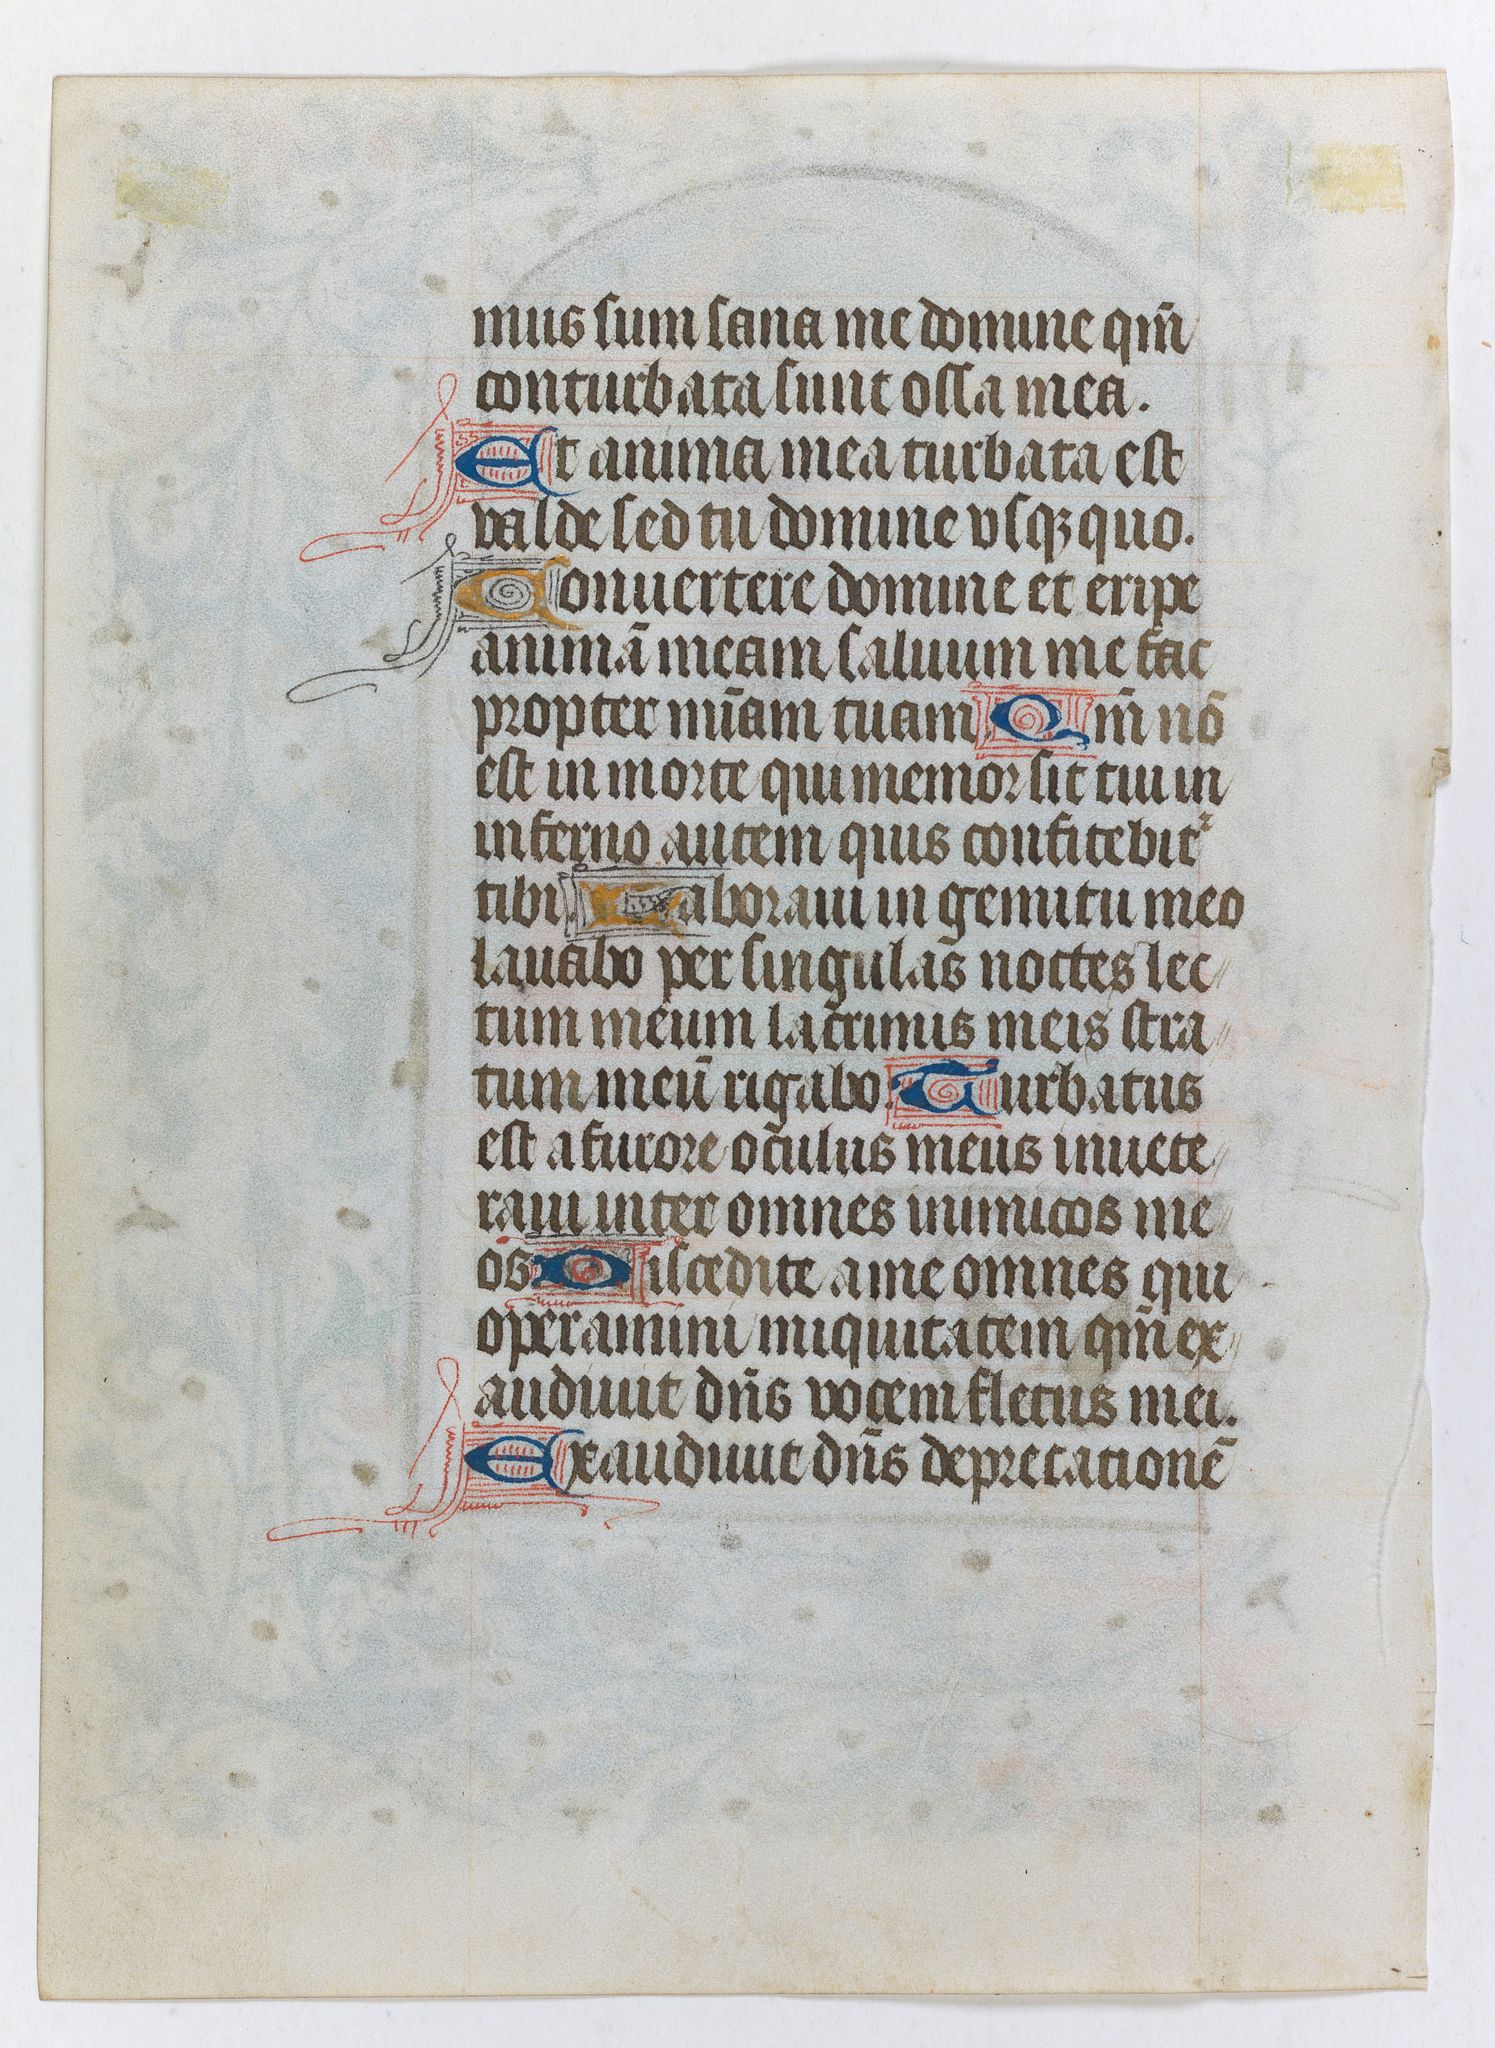 mus sum sana me domine qm̄
conturbata sunt ossa mea.
Et anima mea turbata est
valde sed tu domine vsqꝫ quo.
Conuertere domine et eripe
animā meam saluum me fac
propter mīam tuam. Qm̄ nō
est in morte qui memor sit tui in
inferno autem quis confitebit᷑
tibi. Laboraui in gemitu meo
lauabo per singulas noctes lec
tum meum lacrimis meis stra
tum meū rigabo. Turbatus
est a furore oculus meus inuete
raui inter omnes inimicos me
os Discedite a me omnes qui
operamini iniquitatem qm̄ ex
audiuit dn̄s vocem fletus mei.
Exaudiuit dn̄s deprecationē